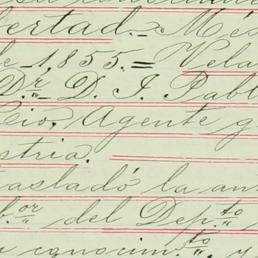 bertad. - Méx
de 1,855. = Vela
D.r D. J. Pabl
cio, Agente g
stria.
asladó la ant
b.or del Dep.to
conocim.to y